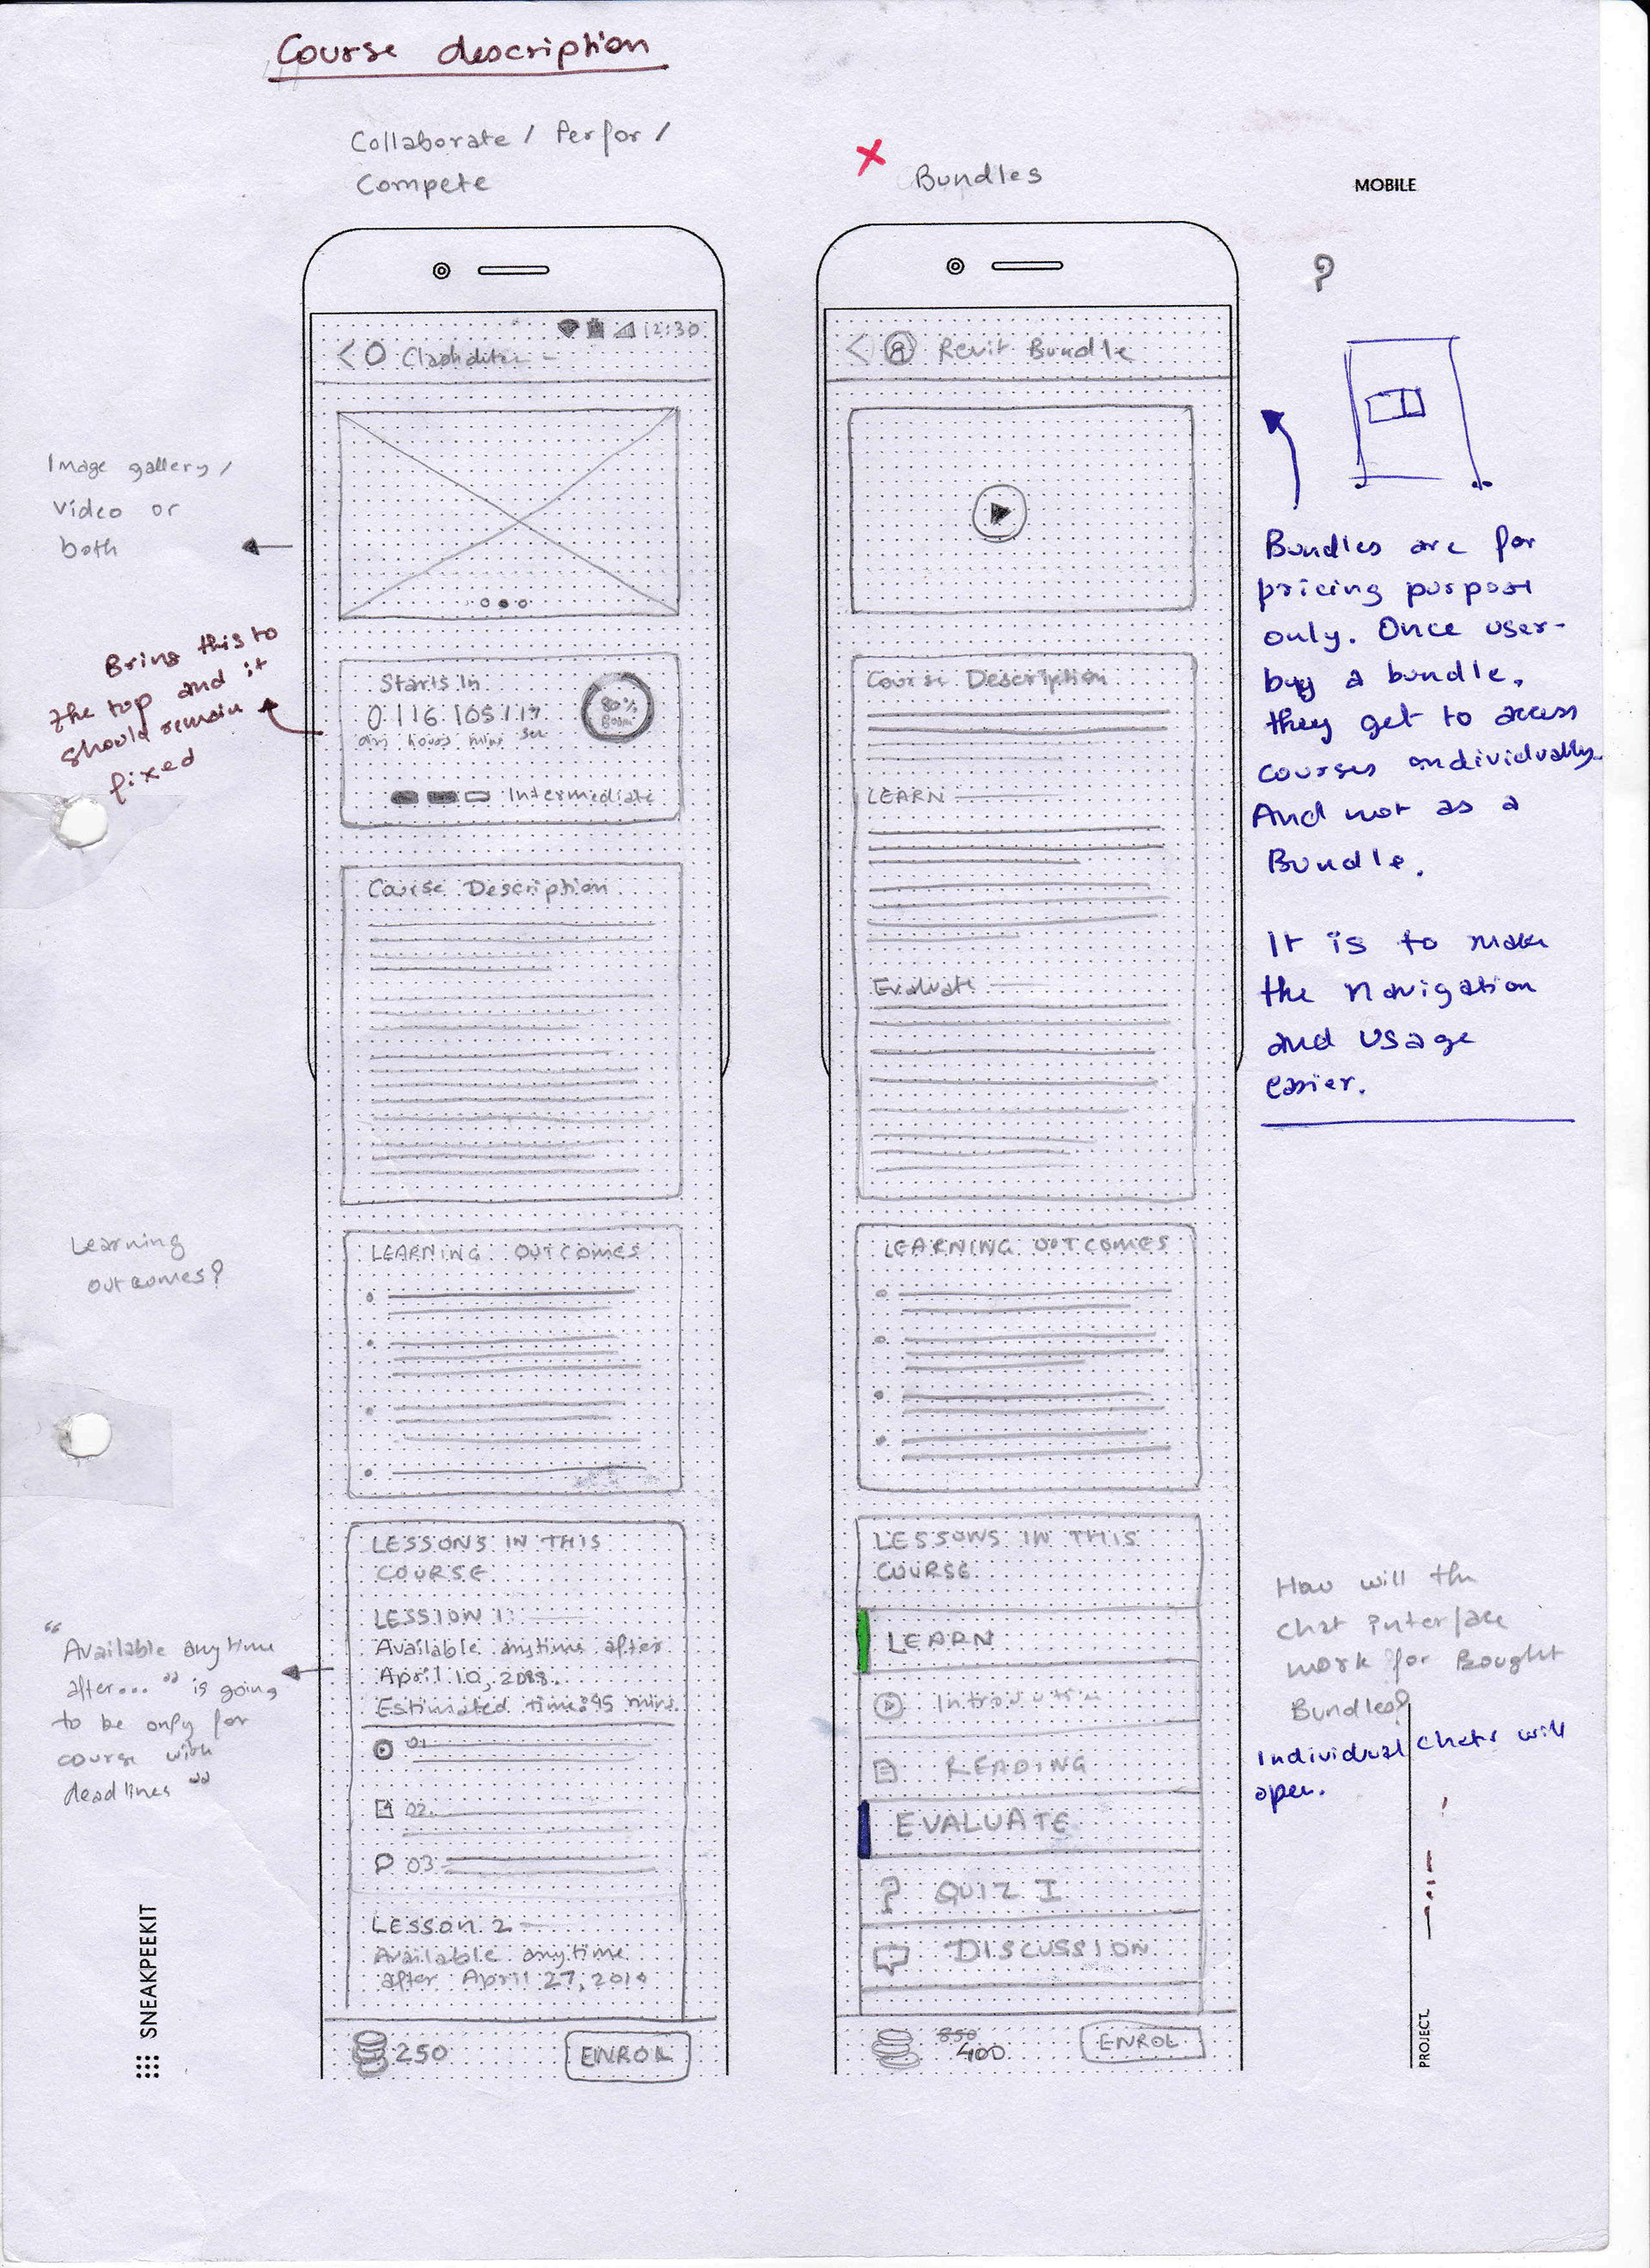 Course description
Collaborate / Perfor /
Compete
Bundles
MOBILE
?
12:30
Image gallery /
video or
both
Bring this to
the top and it
should remain
fixed
Starts in
0 | 16 | 05 | 17
hours mins sec
80%
Intermediate
Course Description
Learning
outcomes?
LEARNING OUTCOMES
LESSONS IN THIS
COURSE
LESSION 1:
Available anytime after
April 10,
Estimated time: 45 mins.
01
02.
03.
LESSON 2
Available anytime
after April 27, 2019
250
ENROL
"Available anytime
after... " is going
to be only for
course with
deadlines "
Revit Bundle
Course Description
LEARN
Evaluate
LEARNING OUTCOMES
LESSONS IN THIS
COURSE
LEARN
Introduction
READING
EVALUATE
? QUIZ I
DISCUSSION
850
400
ENROL
Bundles are for
pricing purpose
only. Once user
buy a bundle,
they get to access
courses individually.
And not as a
Bundle.
It is to make
the navigation
and usage
easier.
How will the
chat interface
work for Bought
Bundles?
Individual chats will
open.
SNEAKPEEKIT
PROJECT